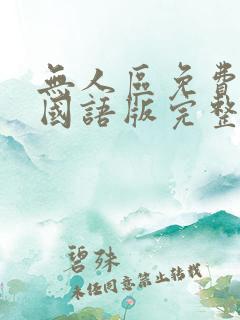 無人區免費
國語版完整
碧殊
未經同意禁止轉載